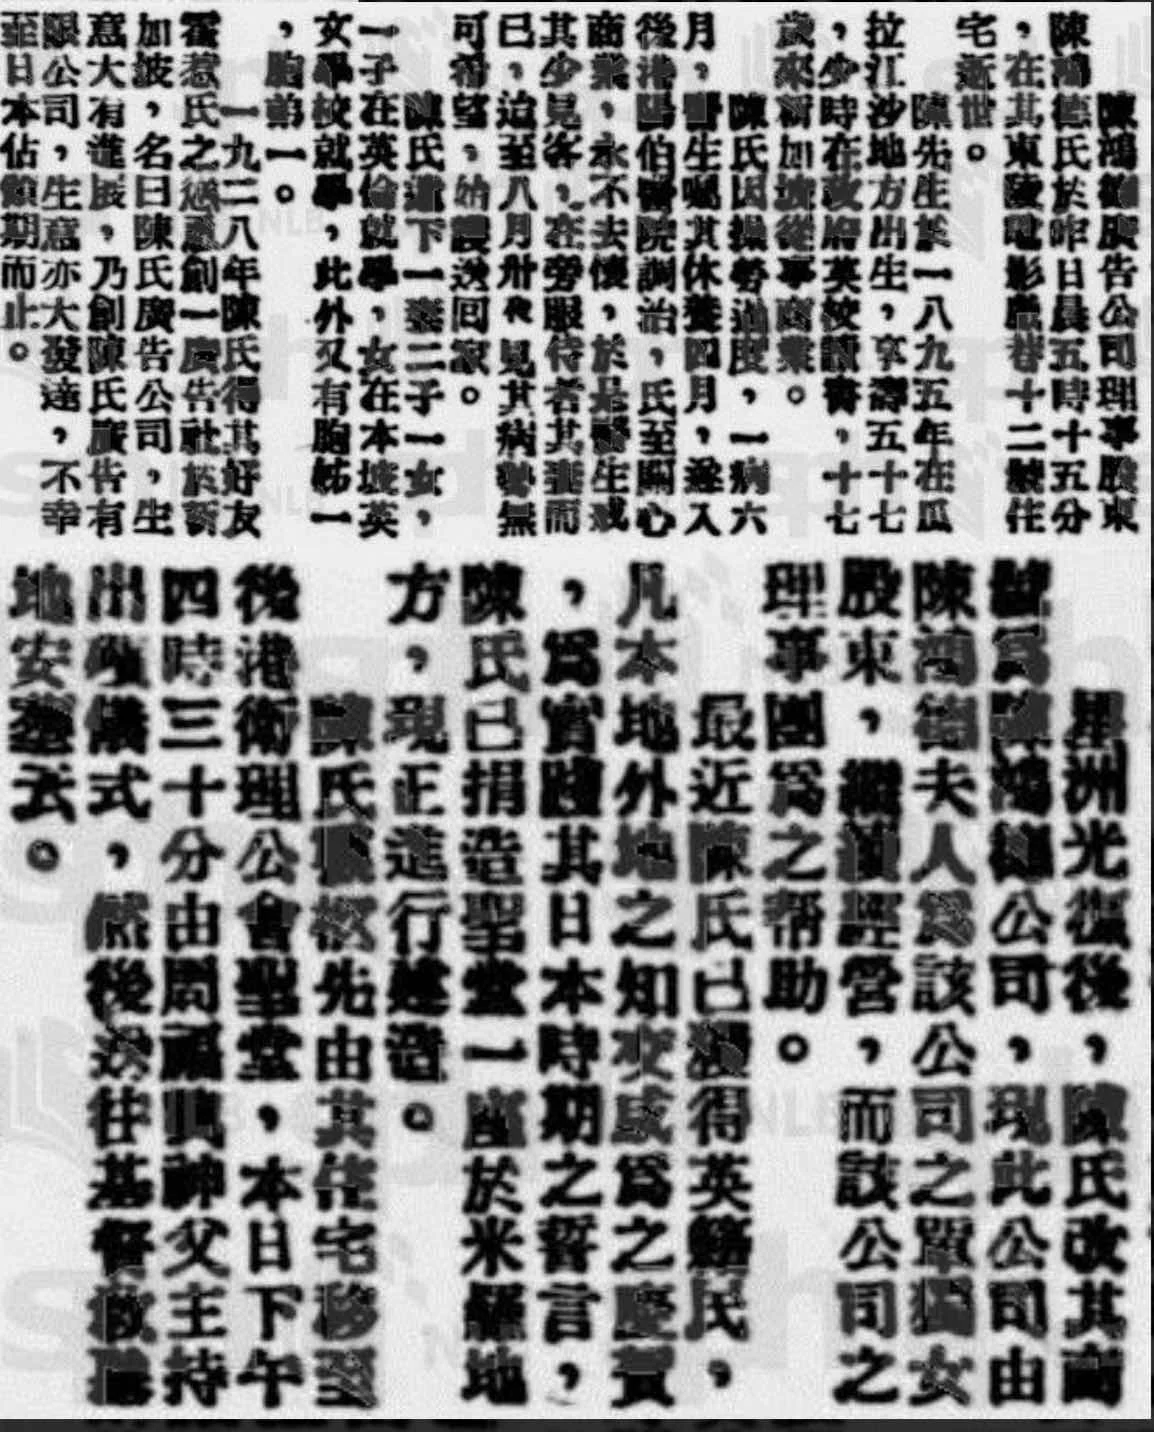 陳鴻德廣告公司理事股東
陳鴻德氏於昨日晨五時十五分
，在其東陵電影戲巷十二號住
宅逝世。
陳先生於一八九五年在瓜
拉江沙地方出生，享壽五十七
，少時在政府英校讀書，十七
歲來新加坡從事商業。
陳氏因操勞過度，一病六
月，醫生囑其休養四月，遂入
後港陽伯醫院調治，氏至關心
商業，永不去懷，於是醫生戒
其少見客，在旁服侍者其妻而
已，迨至八月卅夜見其病勢無
可希望，始護送回家。
陳氏遺下一妻二子一女，
一子在英倫就學，女在本坡英
女學校就學，此外又有胞姊一
，胞弟一。
一九二八年陳氏得其好友
霍惹氏之慫恿創一廣告社於新
加坡，名曰陳氏廣告公司，生
意大有進展，乃創陳氏廣告有
限公司，生意亦大發達，不幸
至日本佔領期而止。
星洲光復後，陳氏改其商
號爲陳鴻德公司，現此公司由
陳鴻德夫人爲該公司之單獨女
股東，繼續經營，而該公司之
理事團爲之帮助。
最近陳氏已獲得英籍民，
凡本地外地之知交咸爲之慶賀
，爲實踐其日本時期之誓言，
陳氏已捐造聖堂一座於米羅地
方，現正進行建造。
陳氏靈柩先由其住宅移至
後港衛理公會聖堂，本日下午
四時三十分由周福興神父主持
出殯儀式，然後送往基督教墓
地安塟云。